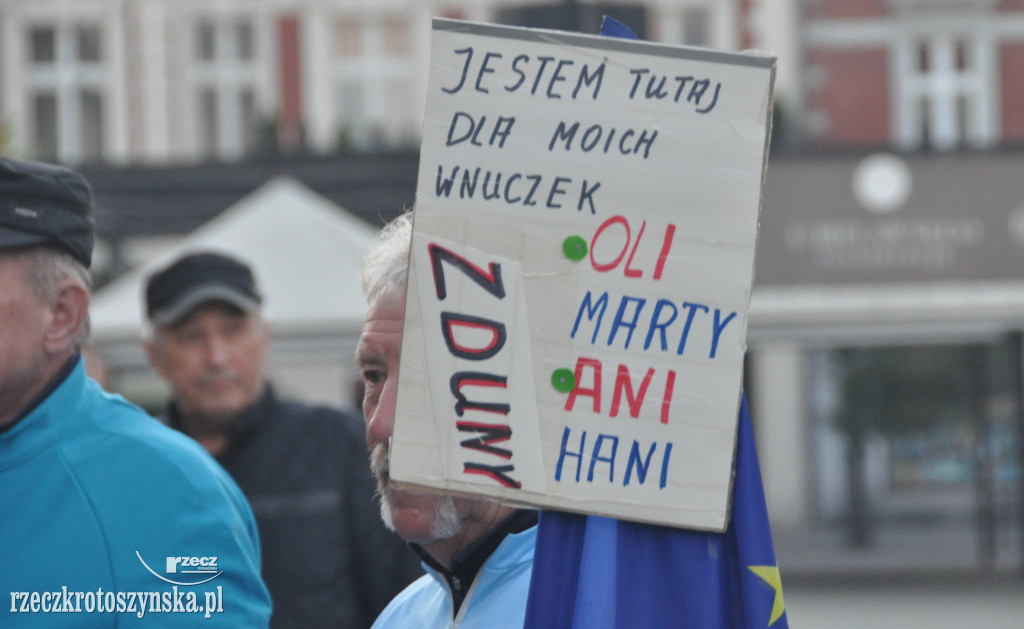 JESTEM TUTAJ
DLA MOICH
WNUCZEK
OLI
MARTY
ANI
HANI
ZDUNY
rzecz
rzeczkrotoszynska.pl